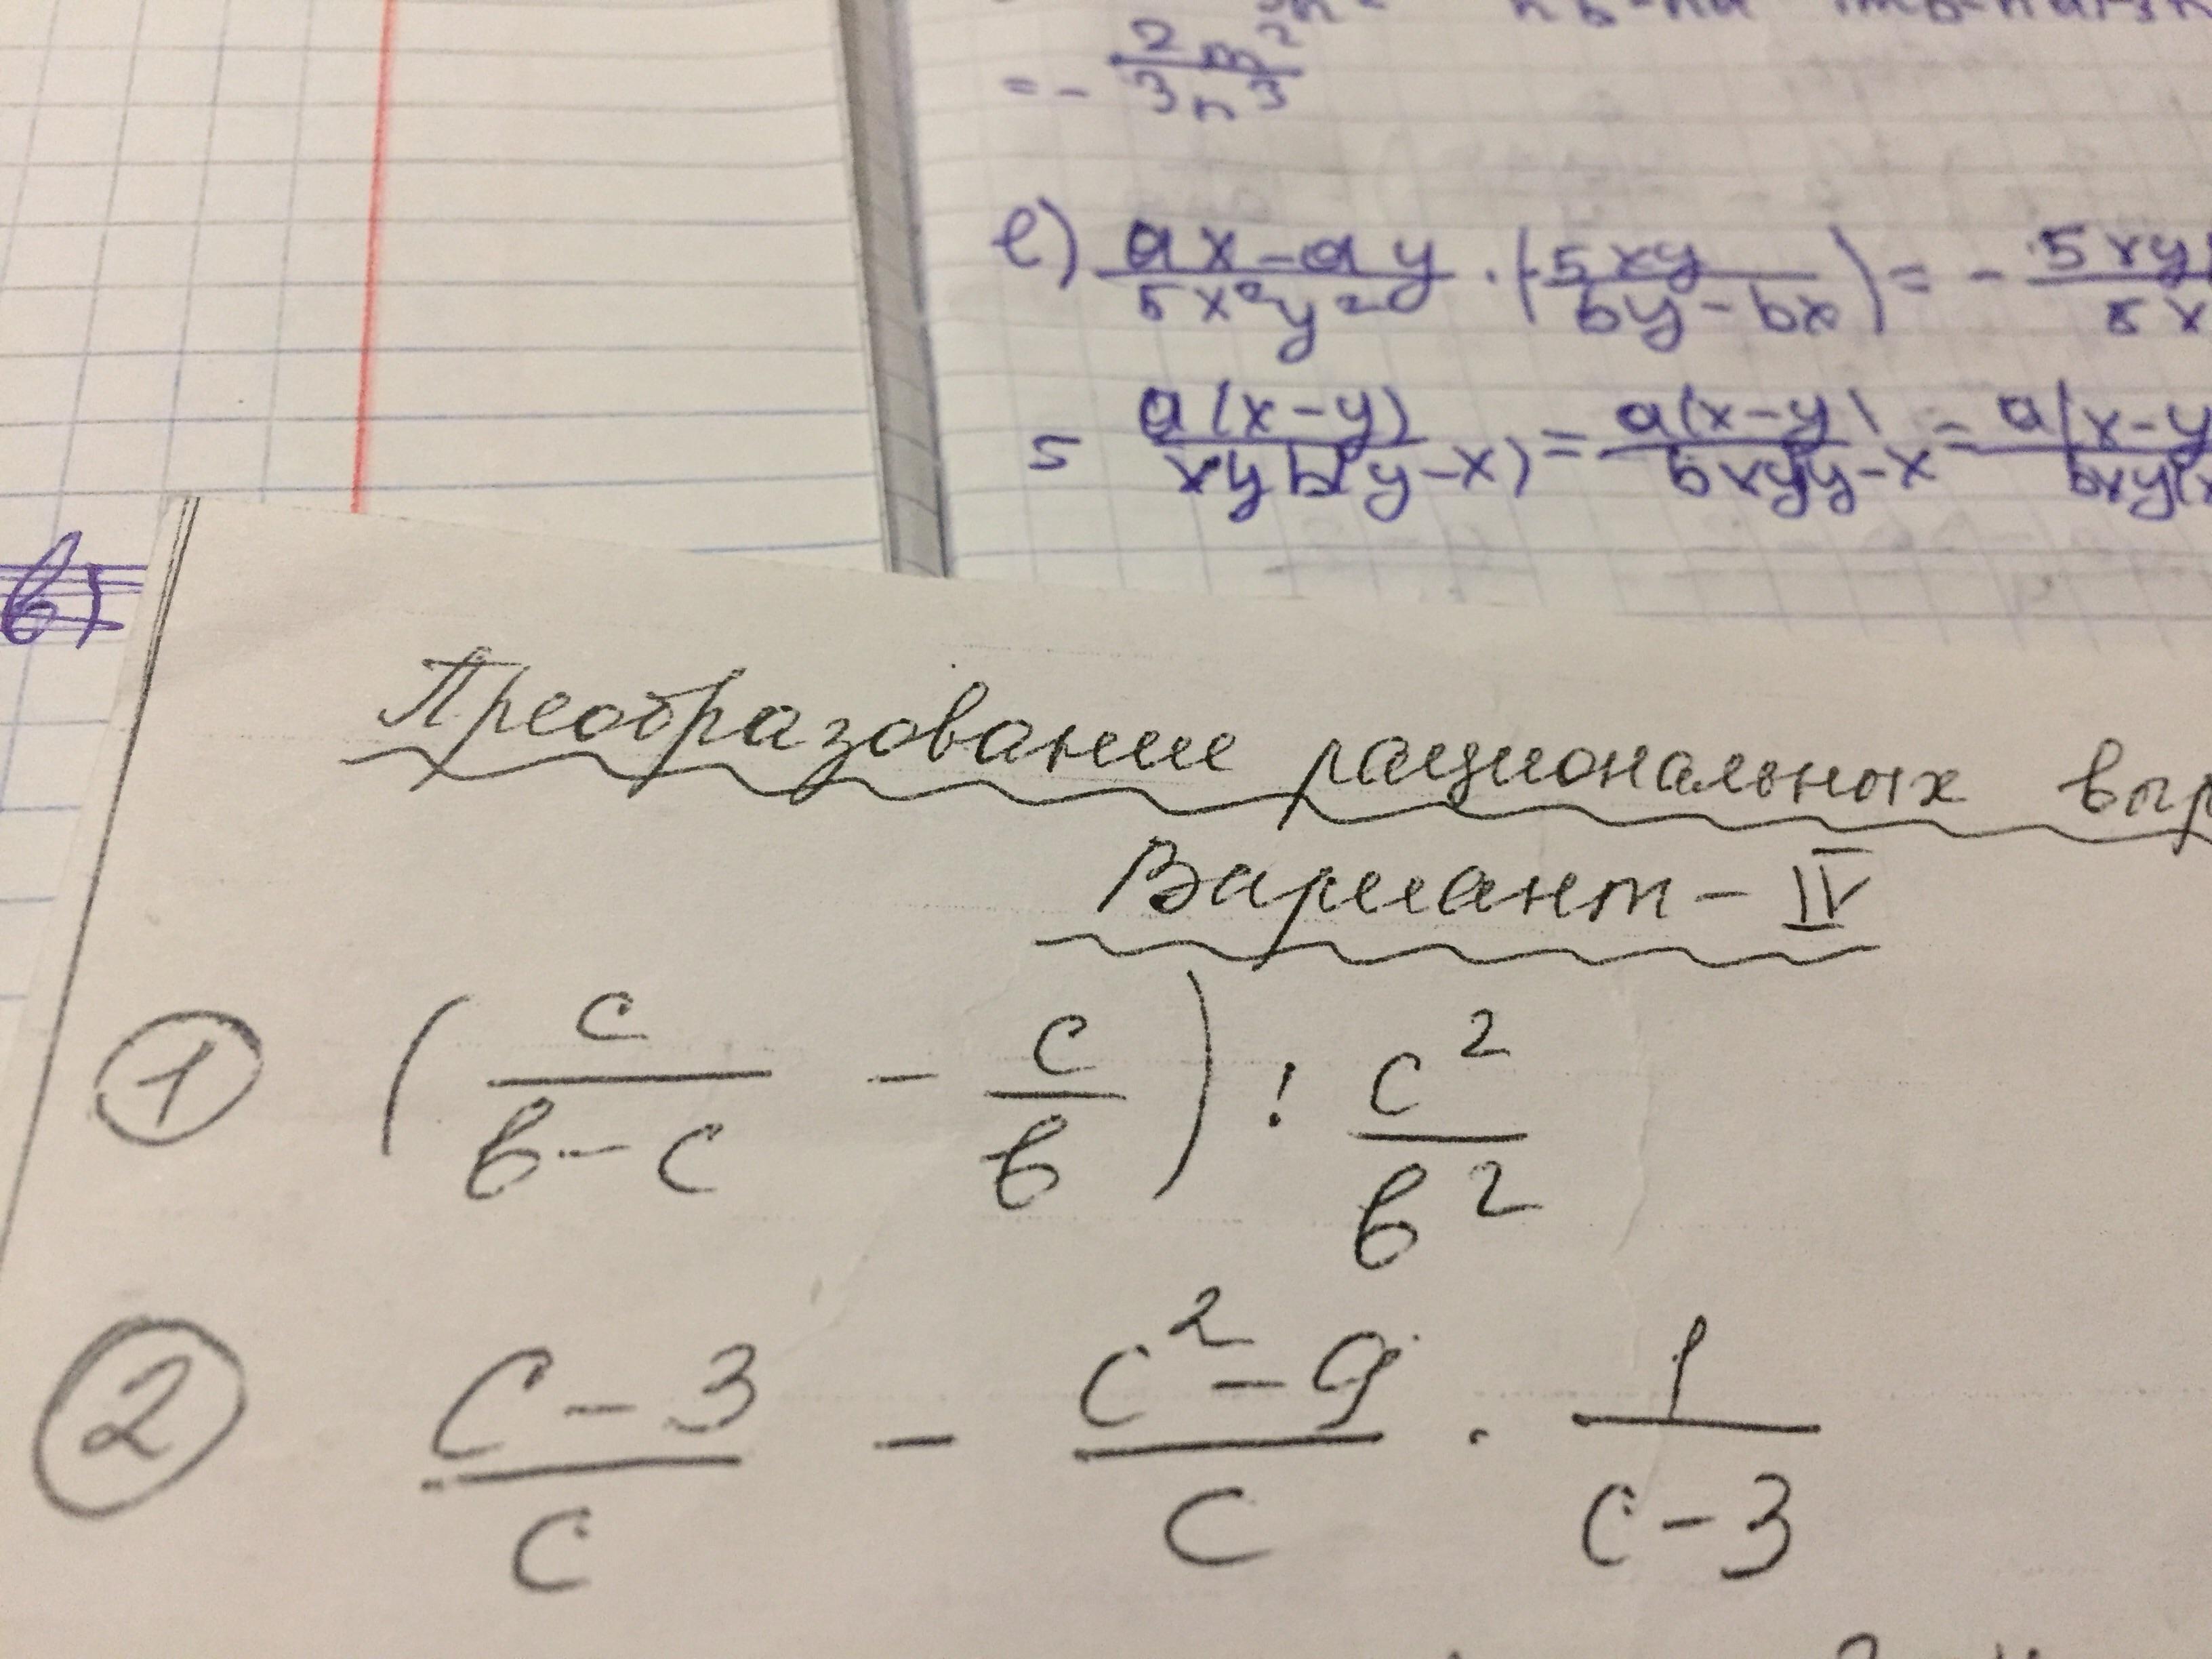 = - 2/3 m²/n³
е) (ax-ay)/(5x²y²) · (-5xy/(by-bx)) = - 5xy/5x
= a(x-y)/(xyb(y-x)) = a(x-y)/(bxy(y-x = a(x-y/bxy(
в)
Преобразование рациональных выр
Вариант - IV
① (c/(в-c) - c/в) : c²/в²
② (c-3)/c - (c²-9)/c · 1/(c-3)